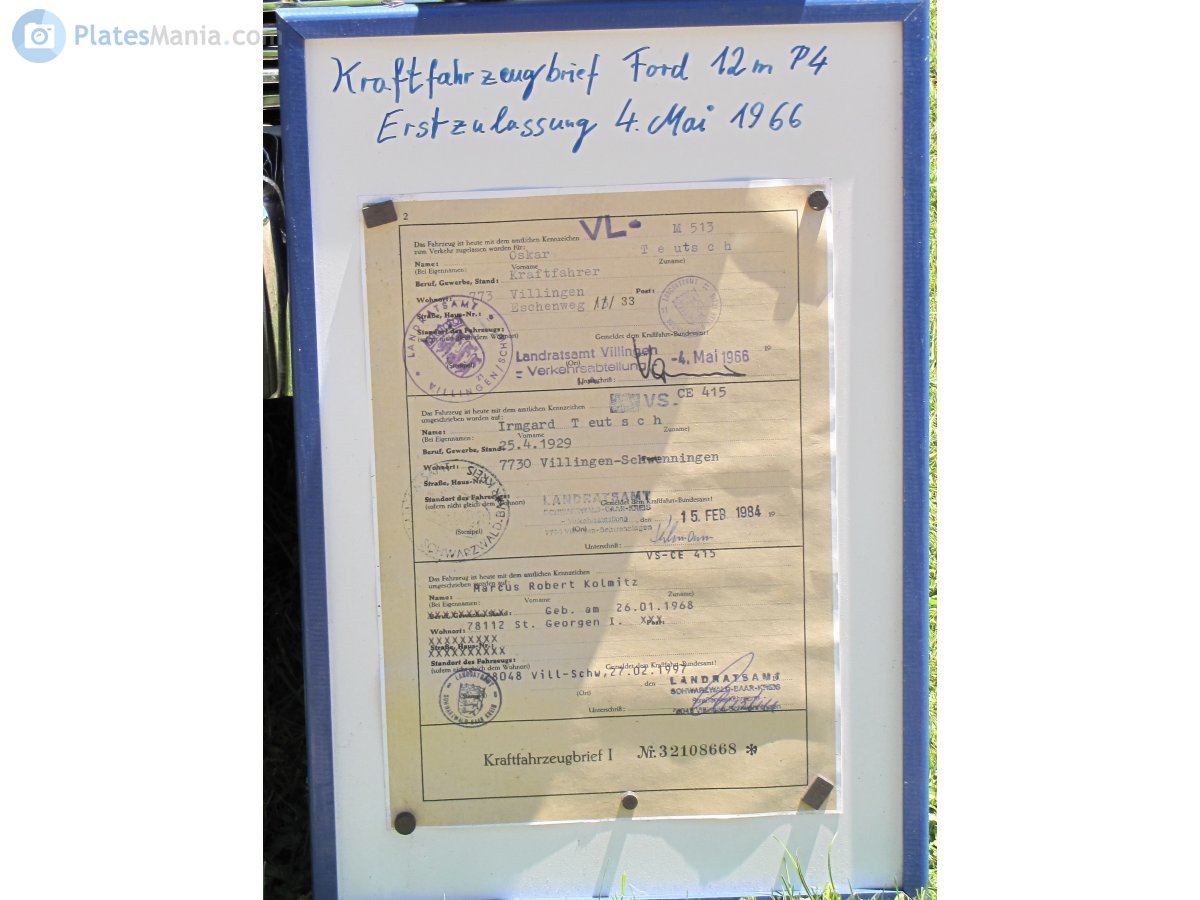 PlatesMania.com
Kraftfahrzeugbrief Ford 12m P4
Erstzulassung 4. Mai 1966
2
Das Fahrzeug ist heute mit dem amtlichen Kennzeichen VL- M 513
zum Verkehr zugelassen worden für:
Oskar Teutsch
Name:
(Bei Eigennamen: Vorname Zuname)
Kraftfahrer
Beruf, Gewerbe, Stand:
Wohnort: 773 Villingen Post:
Eschenweg 11/ 33
Straße, Haus-Nr.:
Standort des Fahrzeugs:
(sofern nicht gleich dem Wohnort) Gemeldet dem Kraftfahrt-Bundesamt!
LANDRATSAMT VILLINGEN/SCHW.
Landratsamt Villingen -4. Mai 1966 19
(Stempel) (Ort)
- Verkehrsabteilung
Unterschrift:
Das Fahrzeug ist heute mit dem amtlichen Kennzeichen VS- CE 415
umgeschrieben worden auf:
Irmgard Teutsch
Name:
(Bei Eigennamen: Vorname Zuname)
25.4.1929
Beruf, Gewerbe, Stand:
Wohnort: 7730 Villingen-Schwenningen Post:
Straße, Haus-Nr.:
Standort des Fahrzeugs:
(sofern nicht gleich dem Wohnort) Gemeldet dem Kraftfahrt-Bundesamt!
LANDRATSAMT
SCHWARZWALD-BAAR-KREIS
den 15. FEB 1984 19
(Stempel) (Ort)
Unterschrift:
VS-CE 415
Das Fahrzeug ist heute mit dem amtlichen Kennzeichen
umgeschrieben worden auf:
Marcus Robert Kolmitz
Name:
(Bei Eigennamen: Vorname Zuname)
Beruf, Gewerbe, Stand: Geb. am 26.01.1968
Wohnort: 78112 St. Georgen I. Post:
Straße, Haus-Nr.:
Standort des Fahrzeugs:
(sofern nicht gleich dem Wohnort) Gemeldet dem Kraftfahrt-Bundesamt!
78048 Vill-Schw, 27.02.1997
LANDRATSAMT
SCHWARZWALD-BAAR-KREIS
(Ort) den
Unterschrift:
Kraftfahrzeugbrief I Nr. 32108668 *